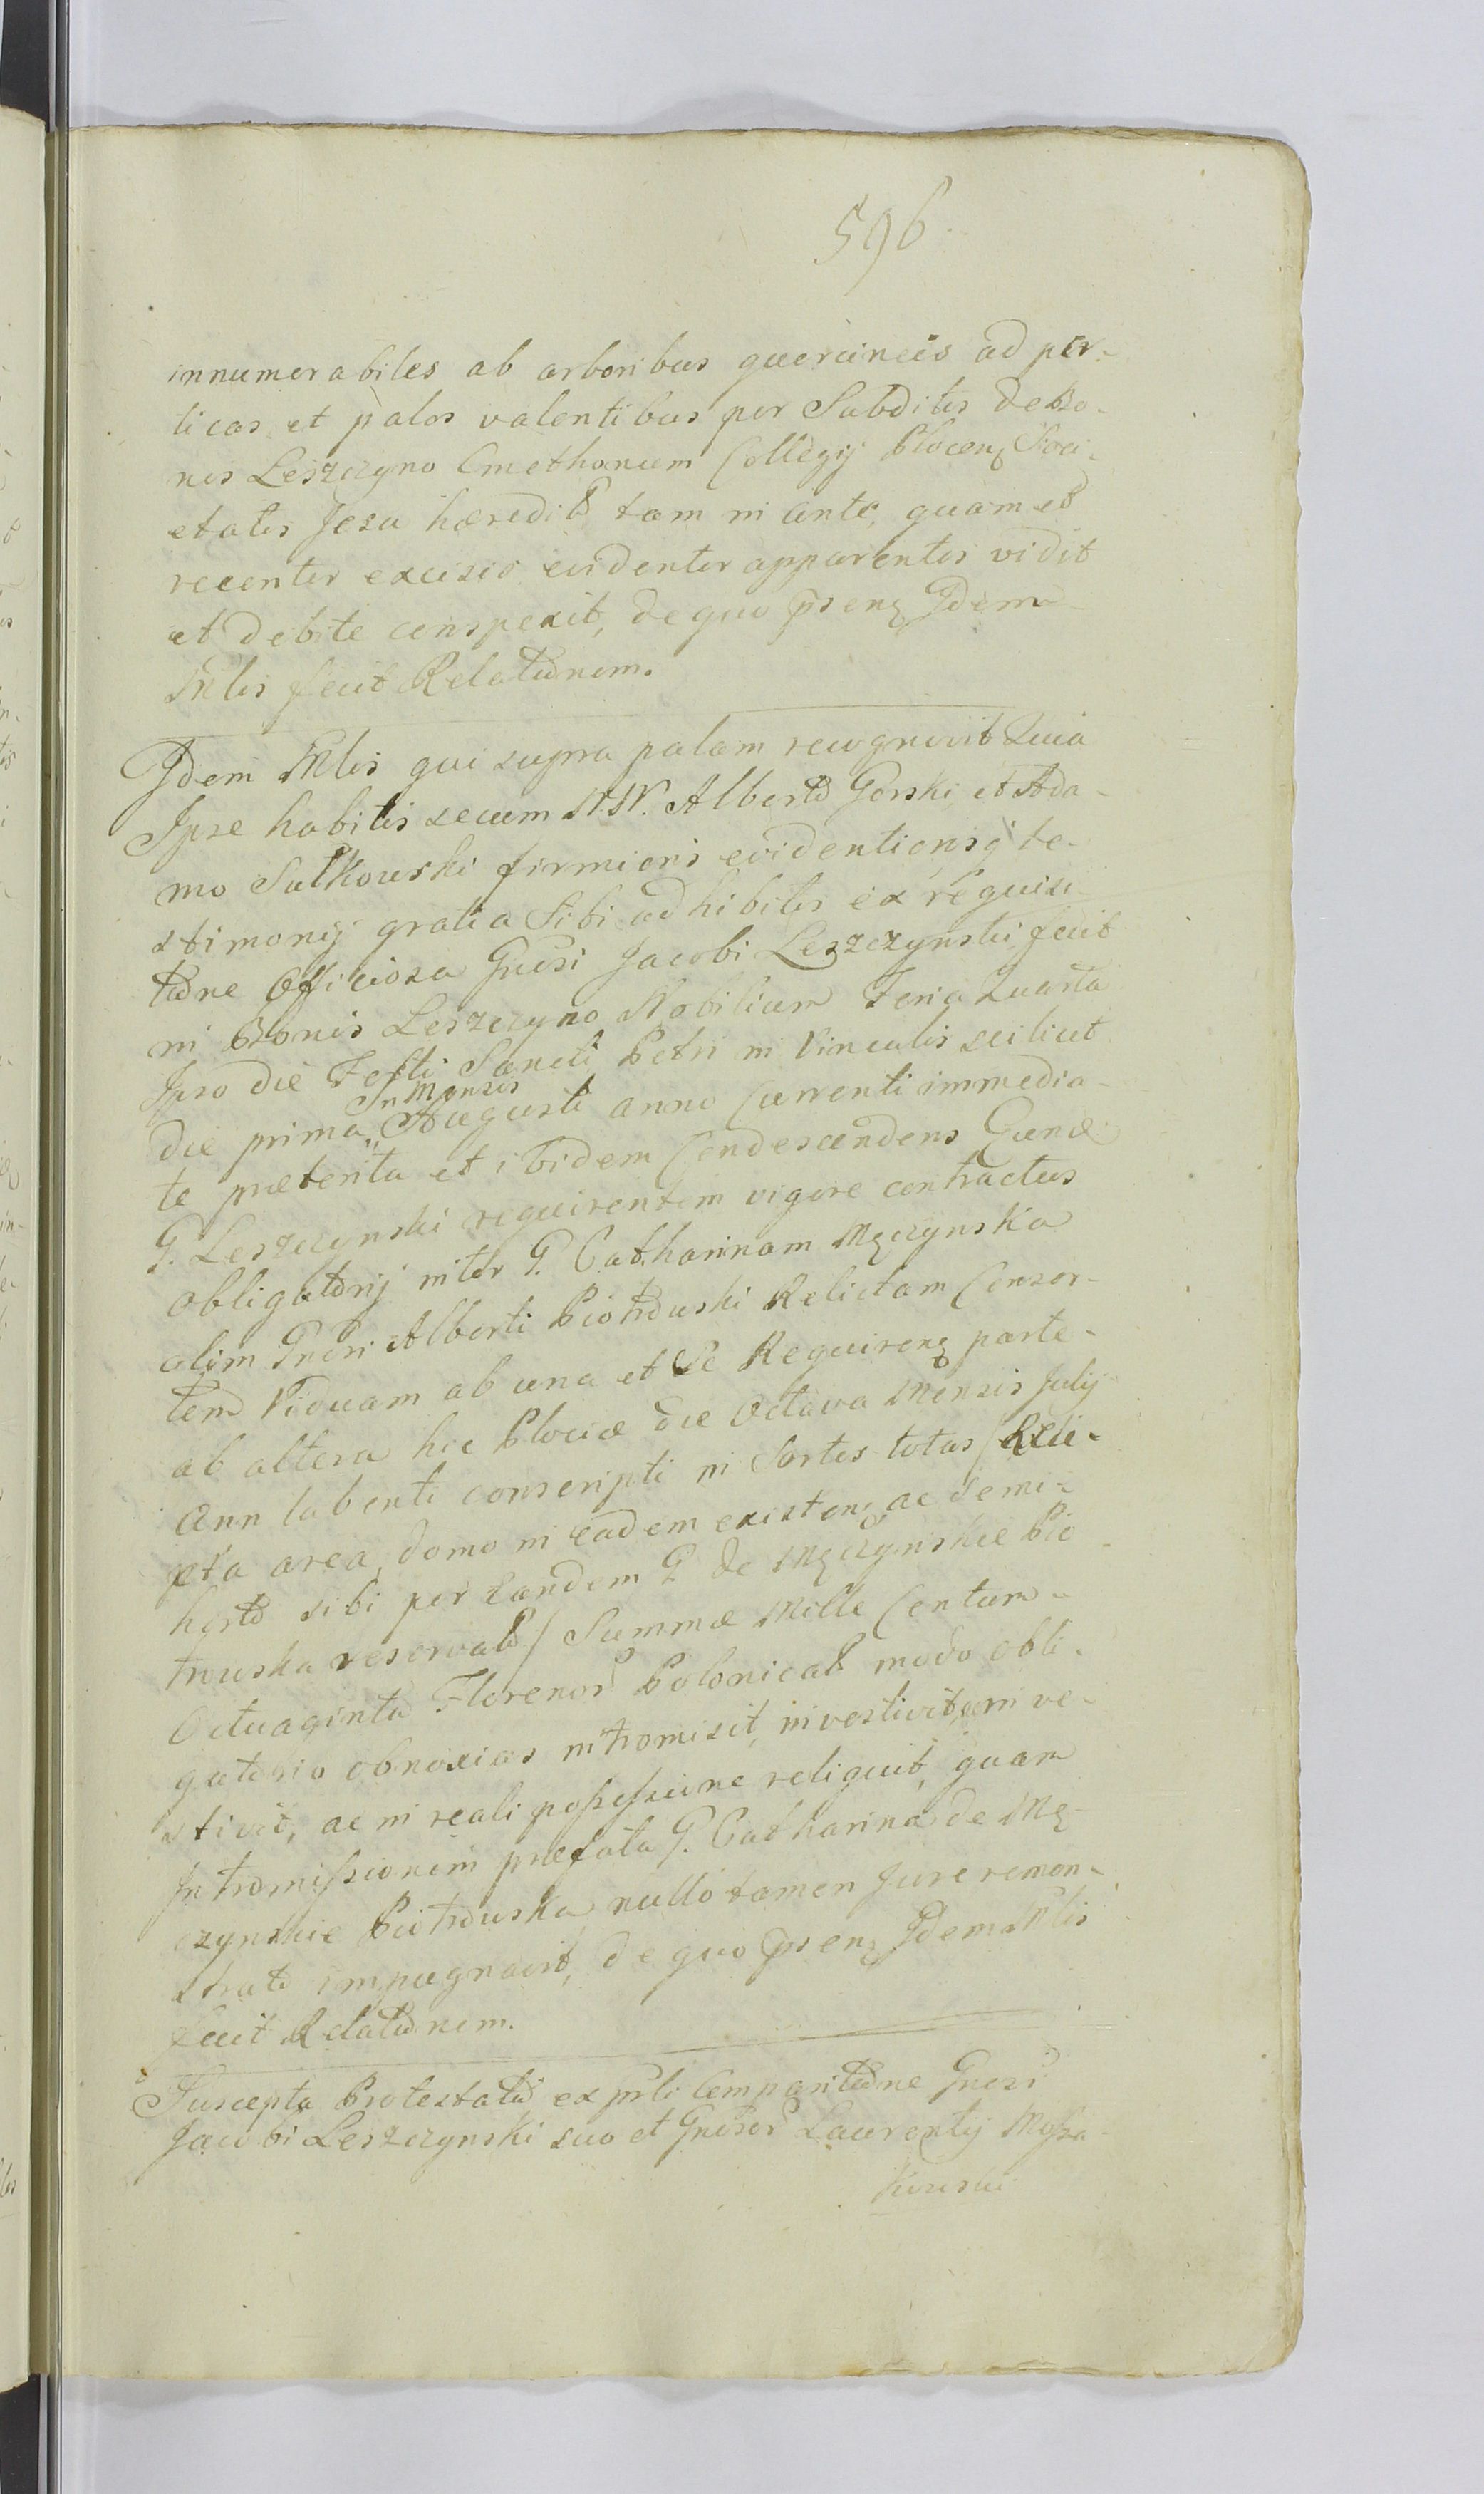 596
innumerabiles ab arboribus quercineis ad per-
ticas et palos valentibus per Subditos de Bo-
nis Leszczyno Cmethonum Collegij Plocenʒ Soci-
etatis Jesu hæredit tam in ante, quam et
recenter excisio evidenter apparentes vidit
et debite conspexit, de quo psenʒ Jdem
Mlis fecit Relatonem.
Jdem Mlis qui supra palam recognovit Quia
Jpse habitis secum NN. Alberto Gorski et Ada-
mo Sutkowski firmioris evidentiorisq te-
stimonij gratia Sibi adhibitis ex requisi-
tone Officiosa Gnosi Jacobi Leszczynski fecit
in Bonis Leszczyno Nobilium Feria Quarta
Jpso die Festi Sancti Petri in Vinculis scilicet
In Mensis
die prima Augusti anno Currenti immedia-
te præterita et ibidem Condescendens Genæ
G. Leszczynski requirentem vigore contractus
obligatorij inter G. Catharinam Męczynska
olim Gnosi Alberti Piotrowski Relictam Consor-
tem Viduam ab una et Se Requirenʒ parte
ab altera hic Plociæ die Octava Mensis Julij
Ann labenti conscripti in Sortes totas / Rece-
pta area, domo in eadem existenʒ ac demi-
horto sibi per eandem G de Męczynskie Pio
trowska reservatt / Summæ Mille Centum
Octuaginta Florenor Polonicalt modo obli-
gatorio obnoxias intromisit, investivit, in ve-
stivit, ac in reali possessione reliquit, quam
Intromissionem præfata G. Catharina de Mę-
czynskie Piotrowska nullo tamen Jure remon-
strato impugnavit, de quo psenʒ Jdem Mlis
fecit Relatonem.
Suscepta Protestato ex psli Comparitone Gnosi
Jacobi Leszczynski suo et Gnosor Laurentij Mossa-
kowski